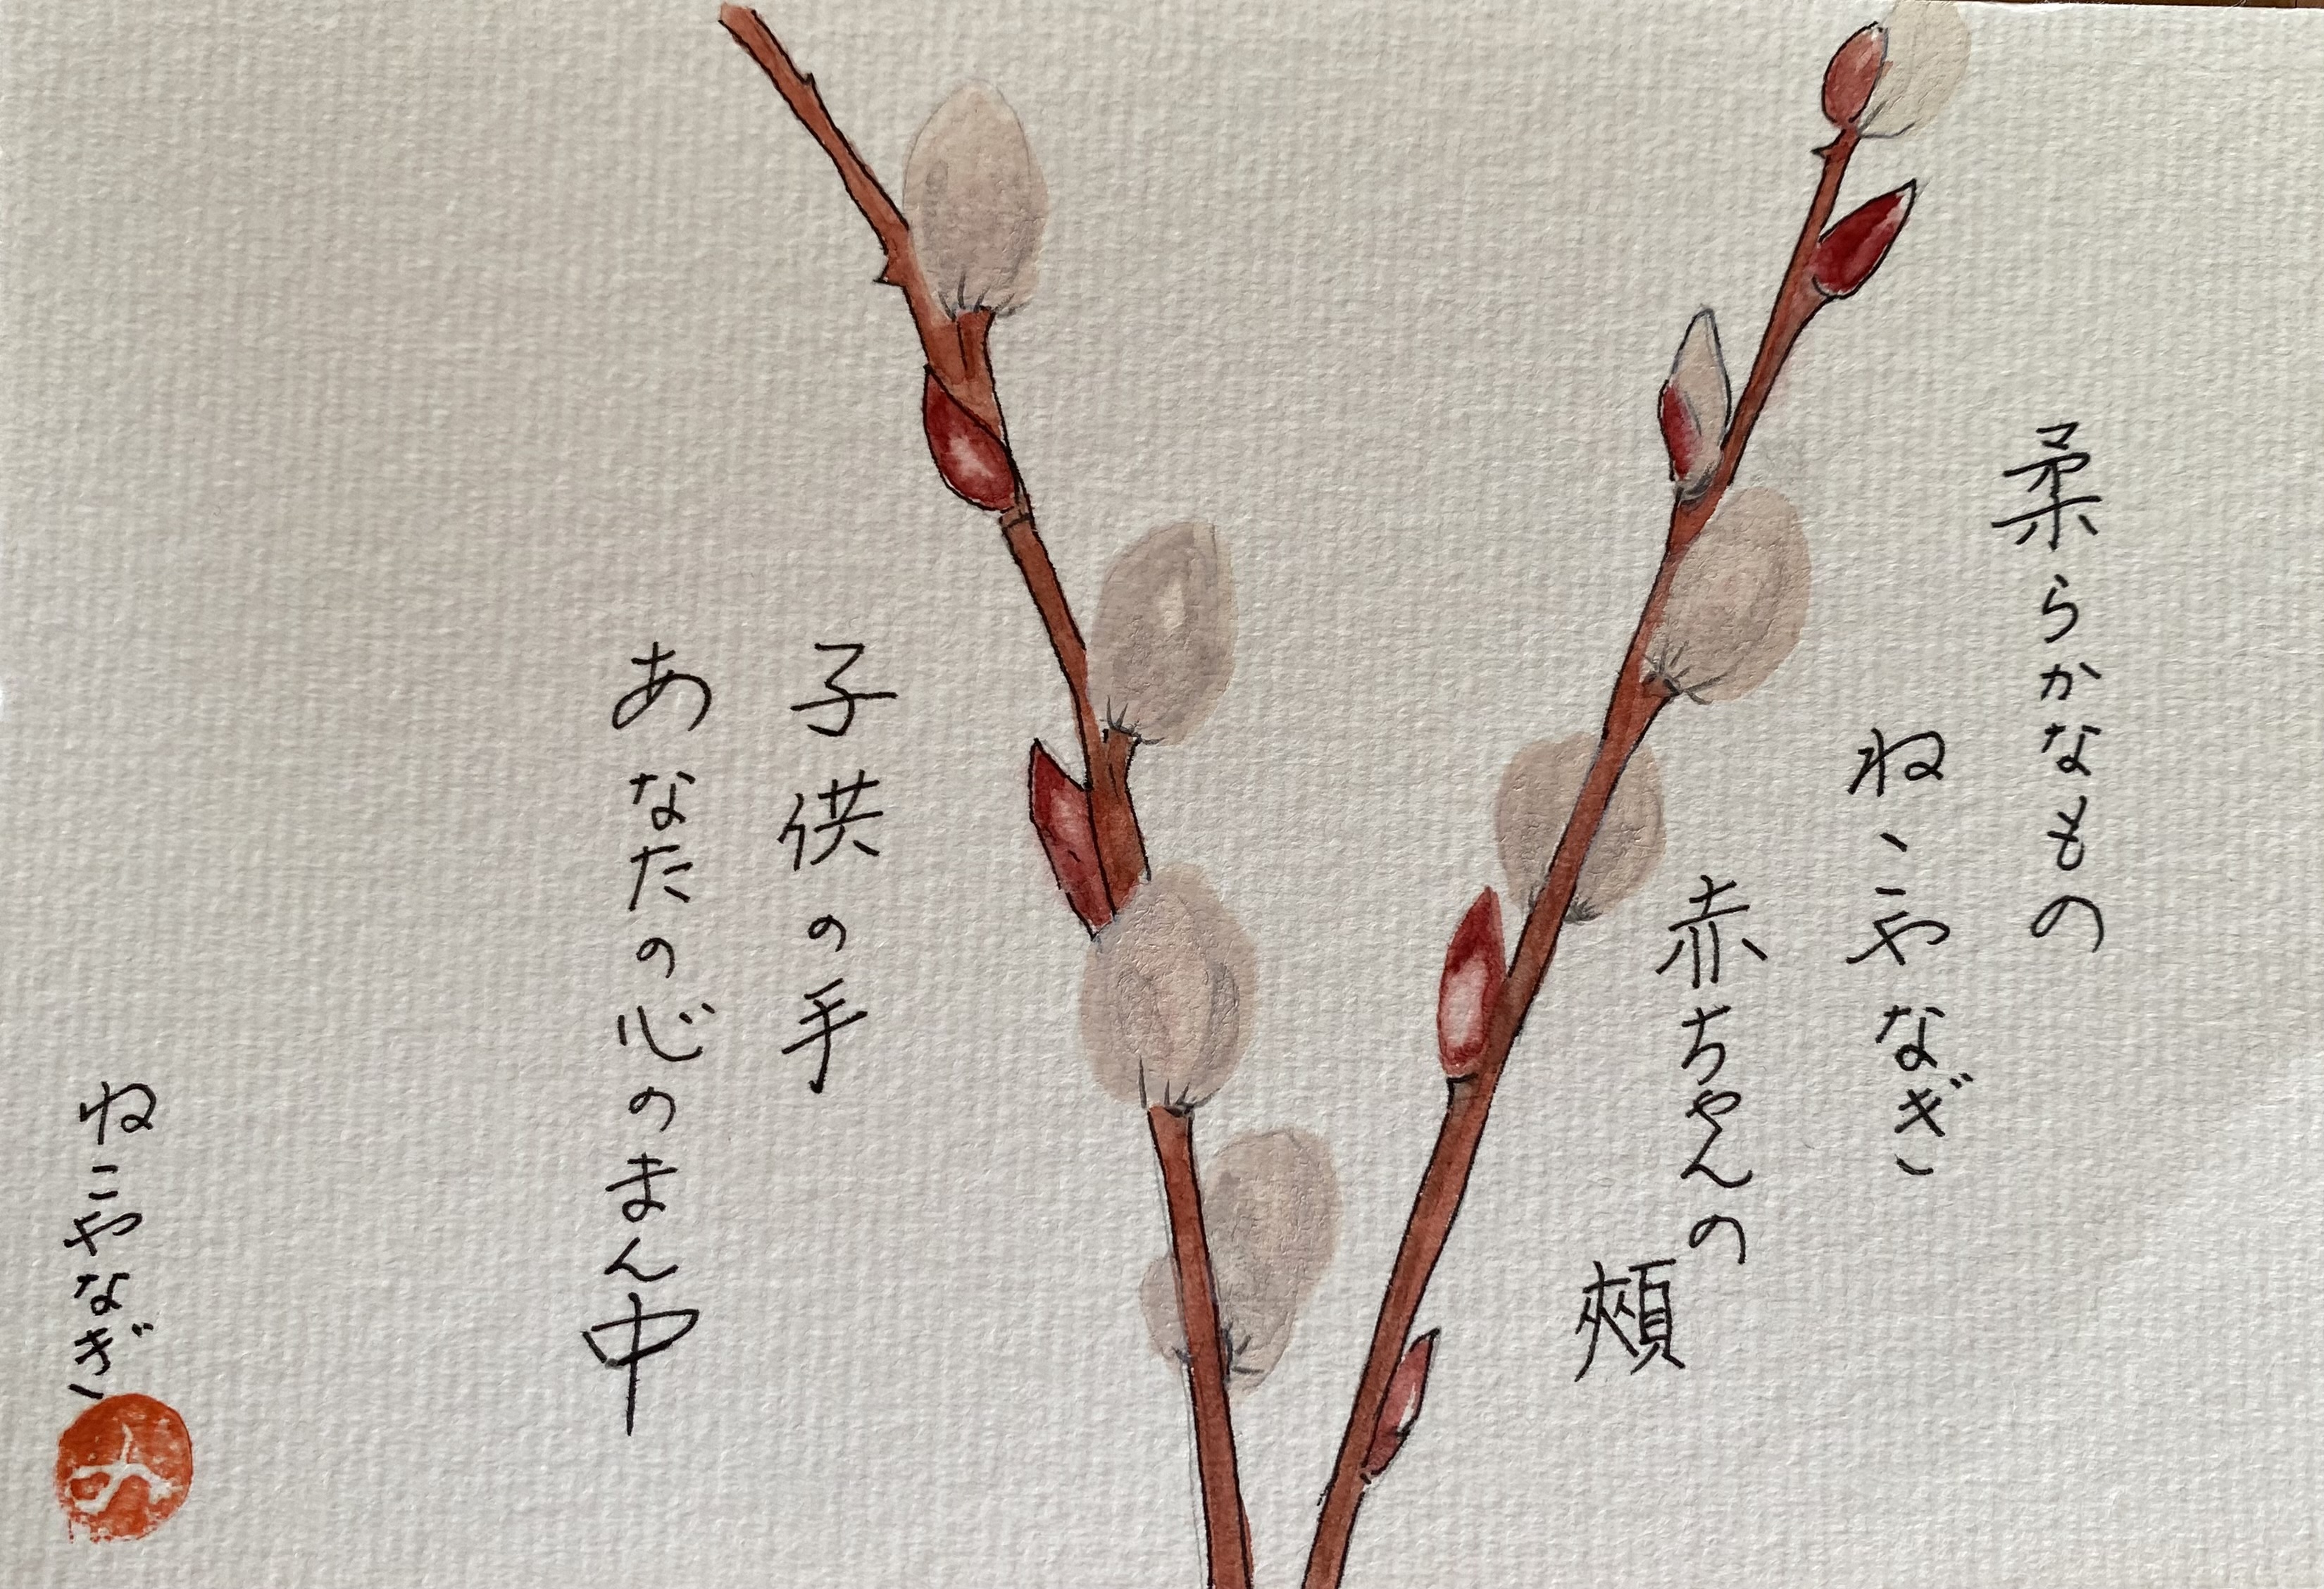 柔らかなもの
ねこやなぎ
赤ちゃんの
頰
子供の手
あなたの心のまん中
ねこやなぎ